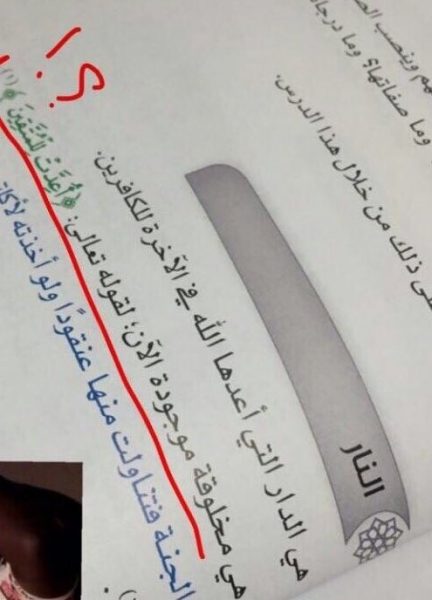 ؟!
وينصب
وما صفاتها؟ وما
ذلك من خلال هذا الدرس.
النار
هي الدار التي أعدها الله في الآخرة للكافرين.
هي مخلوقة موجودة الآن؛ لقوله تعالى: ﴿أُعِدَّتْ لِلْمُتَّقِينَ﴾ (١)
الجنة فتناولت منها عنقودًا ولو أخذته